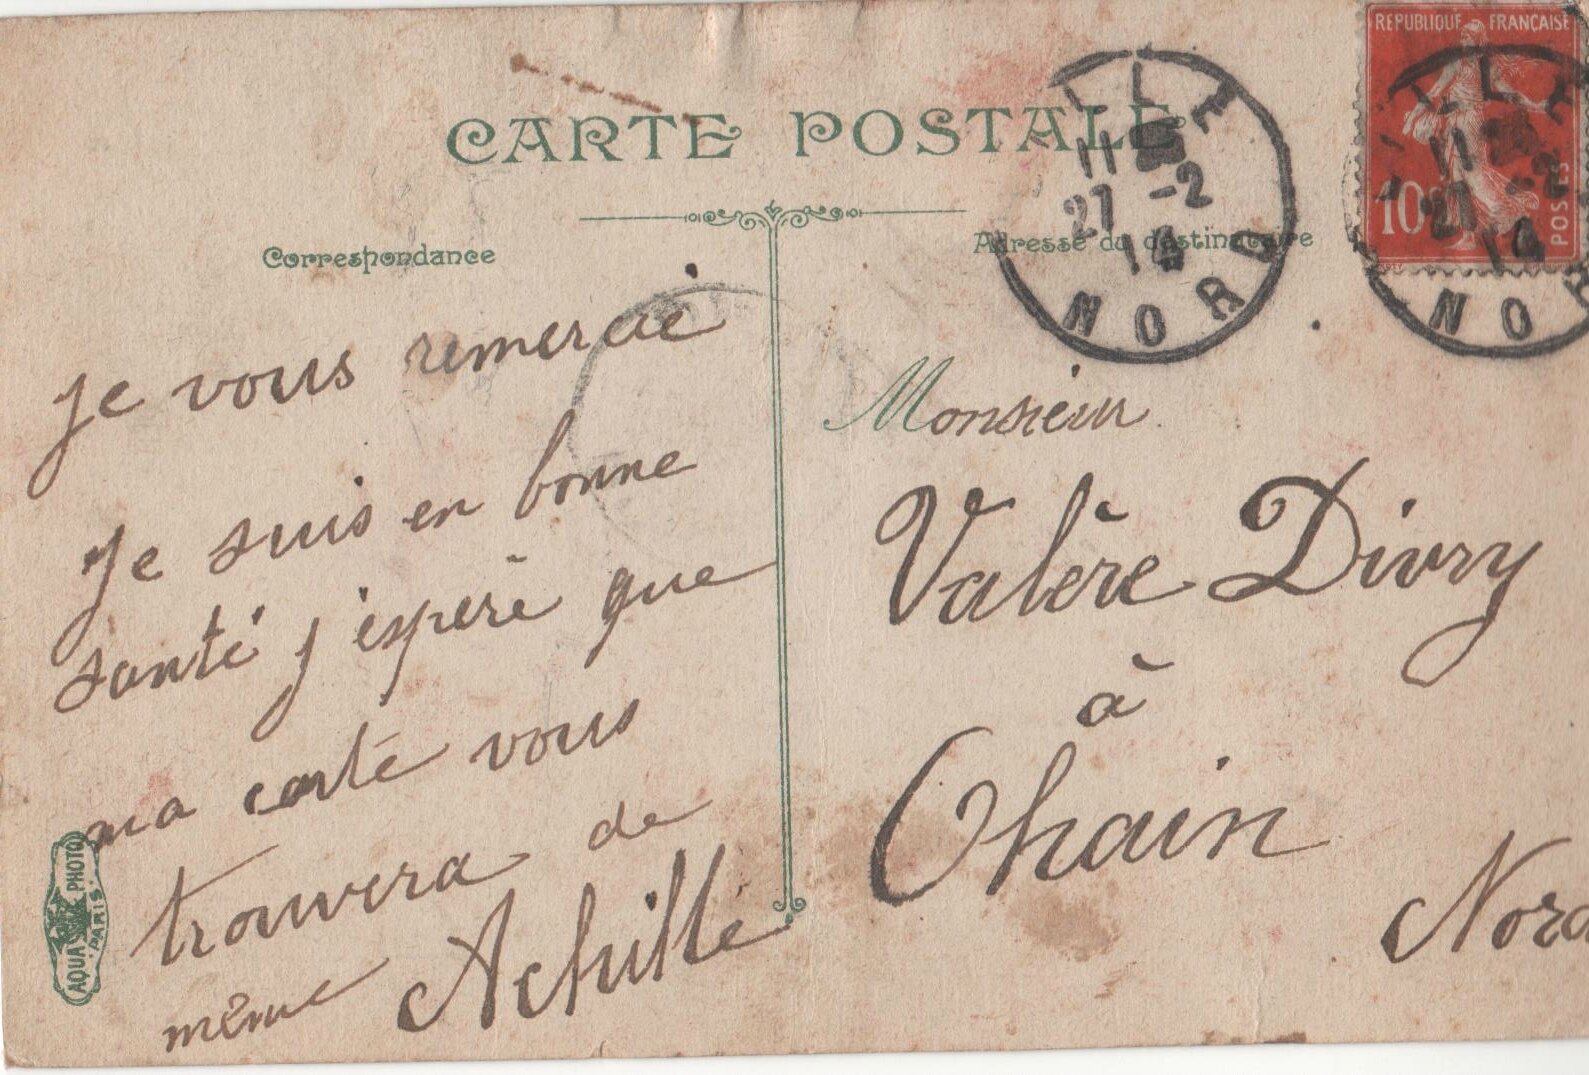 CARTE POSTALE
Correspondance
Adresse du destinataire
RÉPUBLIQUE FRANÇAISE
10c
POSTES
LILLE
11
27 -2
14
NORD
LILLE
11
27 -2
14
NOR
Je vous remercie
Je suis en bonne
santé j'espère que
ma carte vous
trouvera de
même Achille
Monsieur
Valère Divry
à
Ohain
Nord
AQUA PHOTO
PARIS